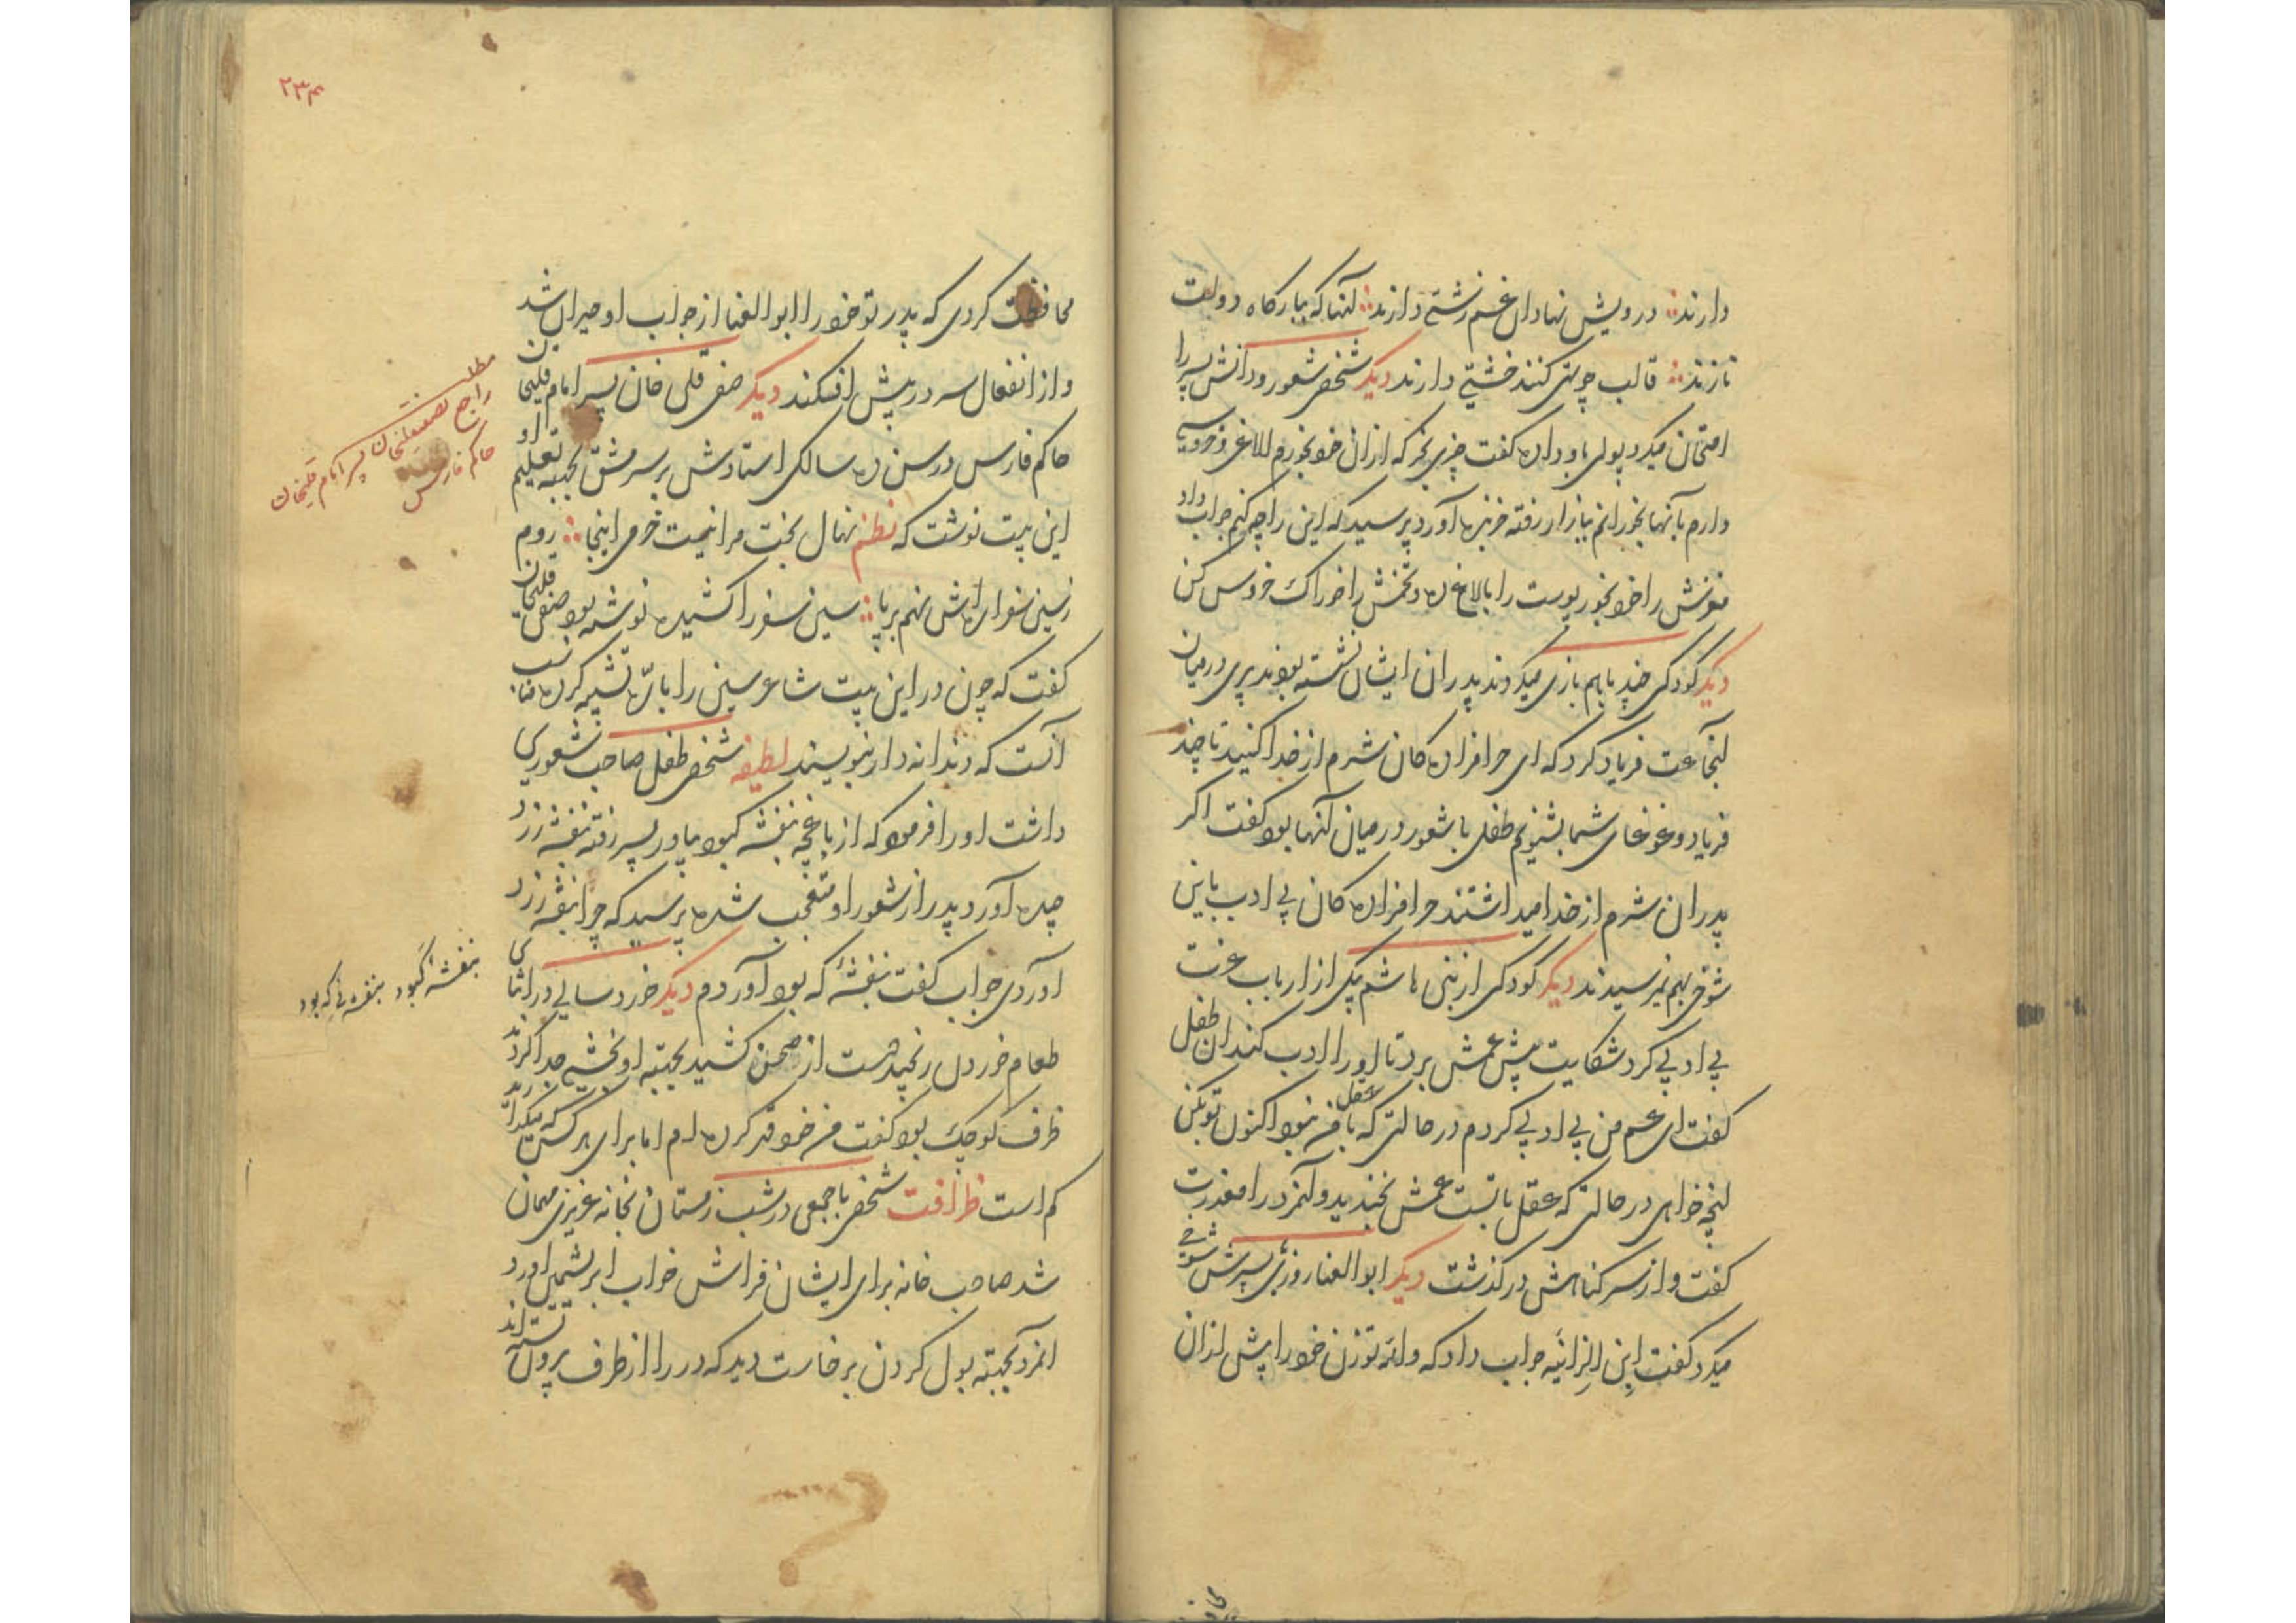 دارند ؞ درویش نهادان غم زشتی دارند ؞ آنها که ببارگاه دولت
نازند ؞ قالب چو تهی کنند خشتی دارند دیگر شخصی شعور و دانش پسر را
امتحان میکرد پولی باو داده گفت چیزی بخر که از ان خود بخورم و الاغ و خروسی
دارم بآنها بخورانم ببازار رفته خربزه آورد پرسید که این را چه کنم جواب داد
مغزش را خود بخور پوست را بالاغ ده و تخمش را خوراک خروس کن
دیگر کودکی چند با هم بازی میکردند پدران ایشان نشسته بودند پیری در میان
آنجماعت فریاد کرد که ای حرامزاده کان شرم از خدا کنید تا چند
فریاد و غوغای شما بشنویم طفلی با شعور در میان آنها بود گفت اگر
پدران شرم از خدا میداشتند حرامزاده کان بی ادب باین
شوخی بهم نمیرسیدند دیگر کودکی از بنی هاشم بیکی از ارباب عزت
بی ادبی کرد شکایت پیش عمش برد تا او را ادب کند ان طفل
گفت ای عم من بی ادبی کردم در حالتی که عقل با من نبود اکنون تو بکن
آنچه خواهی در حالتی که عقل با تست عمش بخندید و آنمرد را معذرت
گفت و از سر گناهش در گذشت دیگر ابوالعنا روزی پسرش شوخی
میکرد گفت ابن الزانیه جواب داد که والله تو زن خود را پیش از ان
۲۳۴
محافظت کردی که پدر تو خود را ابوالعنا از جواب او حیران شد
و از انفعال سر در پیش افکند دیگر صفی قلی خان پسر امام قلیخان
حاکم فارس در سن ده سالگی استادش بر سر مشق بجهة تعلیم او
این بیت نوشت که نظم نهال بخت مرا نیست خرمی اینجا ؞ روم
زسین سفر اره اش نهم بر پا ؞ سین سفر را کشیده نوشته بود صفی قلیخان
گفت که چون در این بیت شاعر سین را باره تشبیه کرده مناسب
آنست که دندانه دار بنویسند لطیفه شخصی طفل صاحب شعوری
داشت او را فرمود که از باغچه بنفشه کبود بیاور پسر رفته بنفشه زرد
چیده آورد پدر از شعور او متعجب شده پرسید که چرا بنفشه زرد
آوردی جواب گفت بنفشهٔ که بود آوردم دیگر خورد سالی در اثنای
طعام خوردن رنجید دست از صحن کشید بجهته او بخشی جدا کردند
ظرف کوچک بود گفت من خود قهر کرده ام اما برای هر کس که میگذارند
کم است ظرافت شخصی با جمعی در شب زمستان بخانه عزیزی مهمان
شد صاحب خانه برای ایشان فراش خواب ابریشمی آورد
آنمرد بجهته بول کردن برخاست دید که در را از طرف بیرون بسته اند
مطلب
راجع بصفیقلیخان پسر امام قلیخان
حاکم فارس
بنفشه کبود بنفشه یی که بود